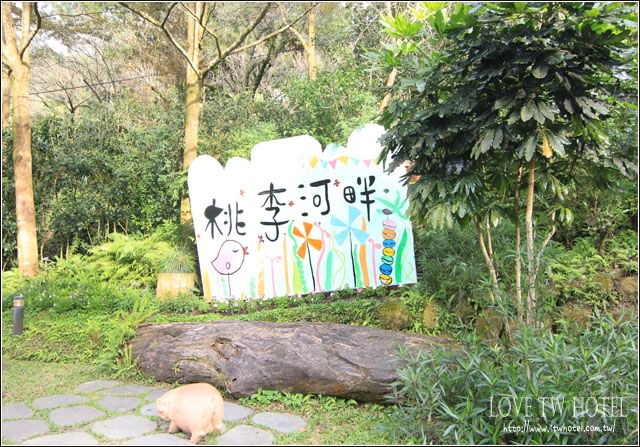 桃李河畔
LOVE TW HOTEL
http://www.twhotel.com.tw/